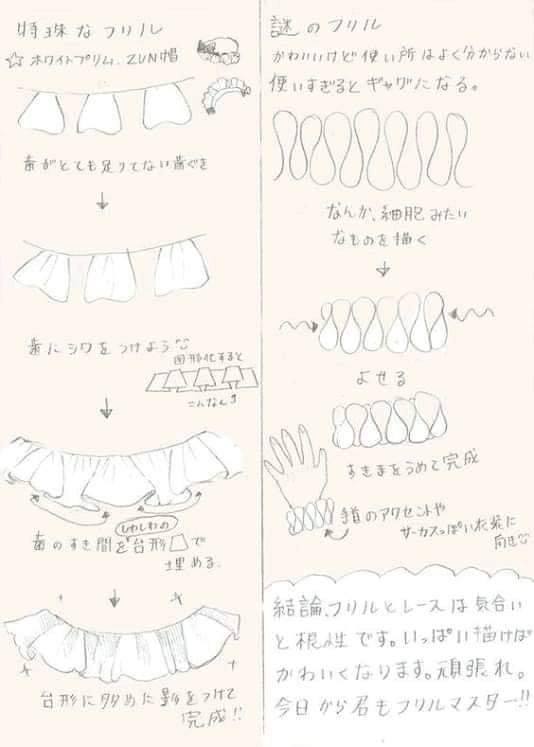 特殊なフリル
☆ホワイトプリム、ZUN帽
歯がとても足りてない歯ぐき
歯にシワをつけよう
図形化すると
こんなん
歯のすき間をしわしわの台形で
埋める。
台形に多めに影をつけて
完成!!
謎のフリル
かわいいけど使い所はよく分からない
使いすぎるとギャグになる。
なんか、細胞みたい
なものを描く
よせる
すきまをうめて完成
手首のアクセントや
サーカスっぽい衣装に
向き
結論、フリルとレースは気合い
と根性です。いっぱい描けば
かわいくなります。頑張れ。
今日から君もフリルマスター!!